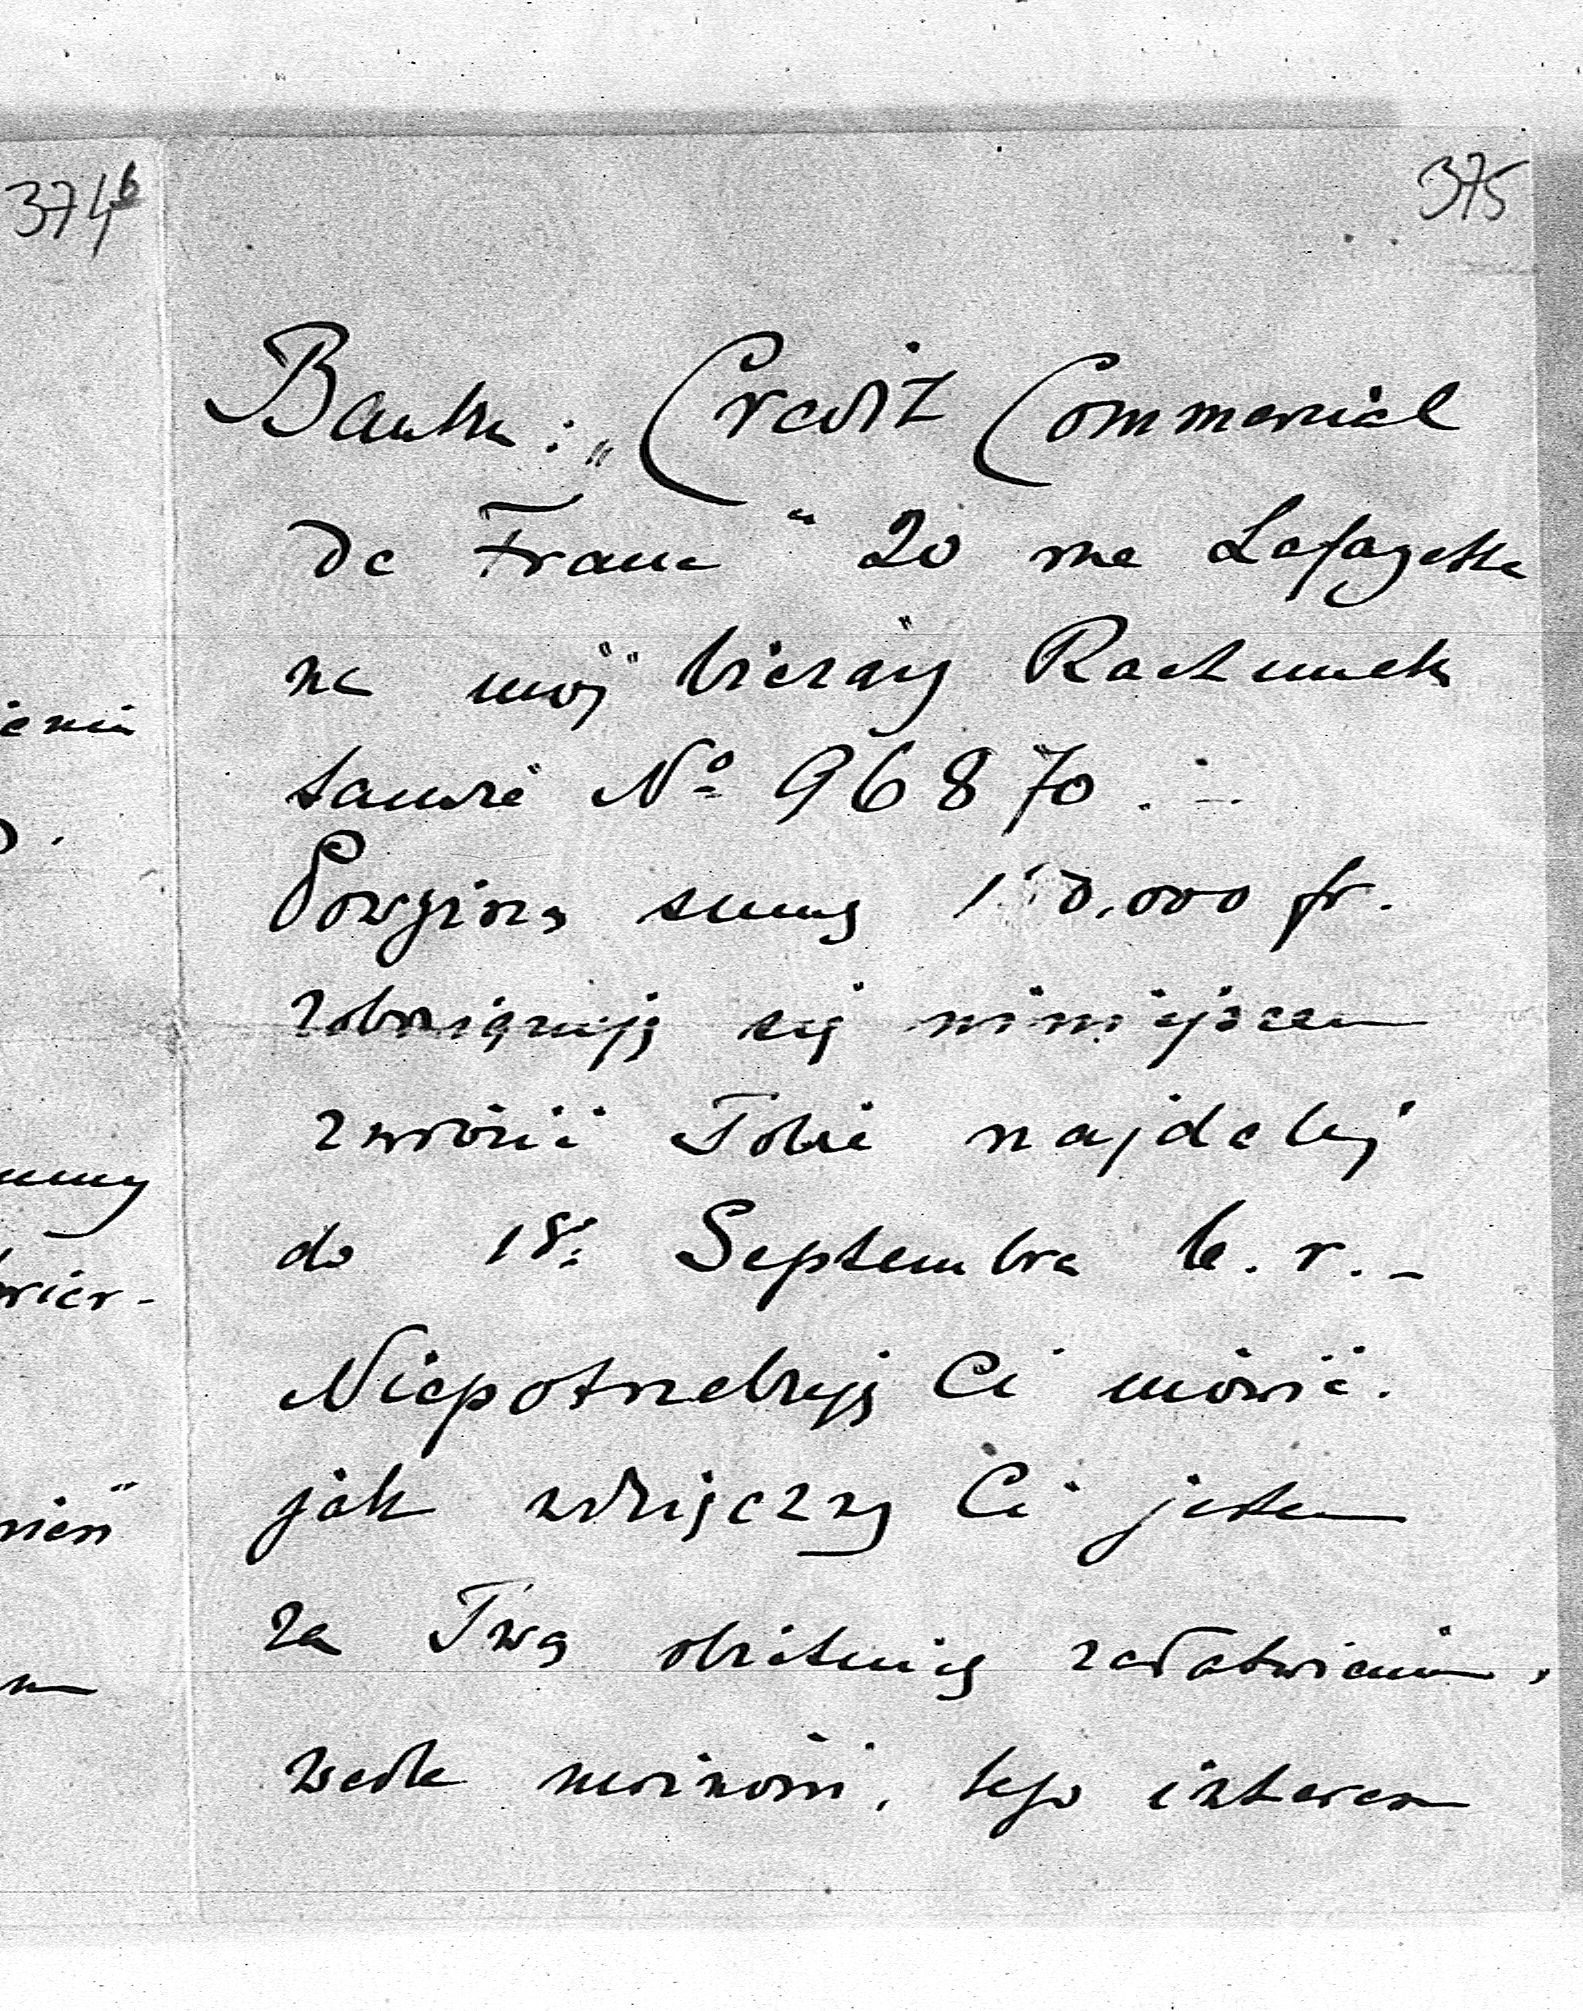 374b
375
Banku: „Credit Commercial
de France" 20 rue Lafayette
na mój bieżący Rachunek
tamże Nº 96870.
Powyższą sumę 10.000 fr.
zobowiązuję się niniejszem
zwrócić Tobie najdalej
do 18. Septembra b. r. –
Niepotrzebuję Ci mówić.
jak wdzięczny Ci jestem
za Twą obietnicę załatwienia,
wedle możności, tego interesu